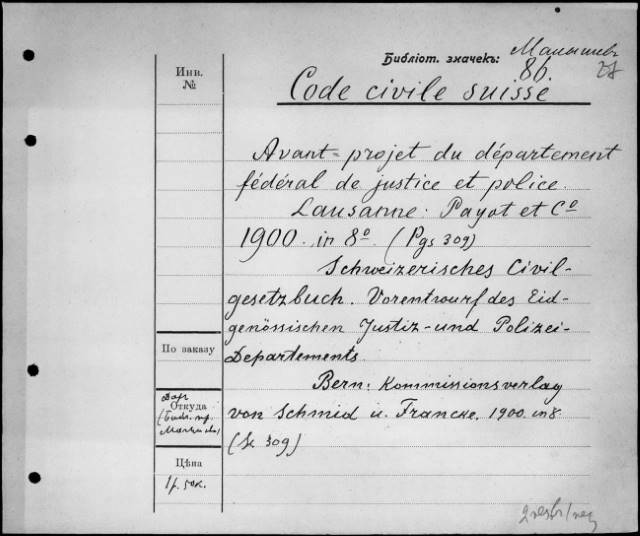 Библіот. значекъ: Малышев
86.
Инв.
№
Code civile suisse
Avant-projet du département
fédéral de justice et police.
Lausanne: Payot et Cº
1900. in 8º (Pgs 309)
Schweizerisches Civil-
gesetzbuch. Vorentwurf des Eid-
genössischen Justiz- und Polizei-
Departements
Bern: Kommissionsverlag
von Schmid u. Francke. 1900. in 8
309)
По заказу
Дар
Откуда
Цѣна
1 р. 50 к.